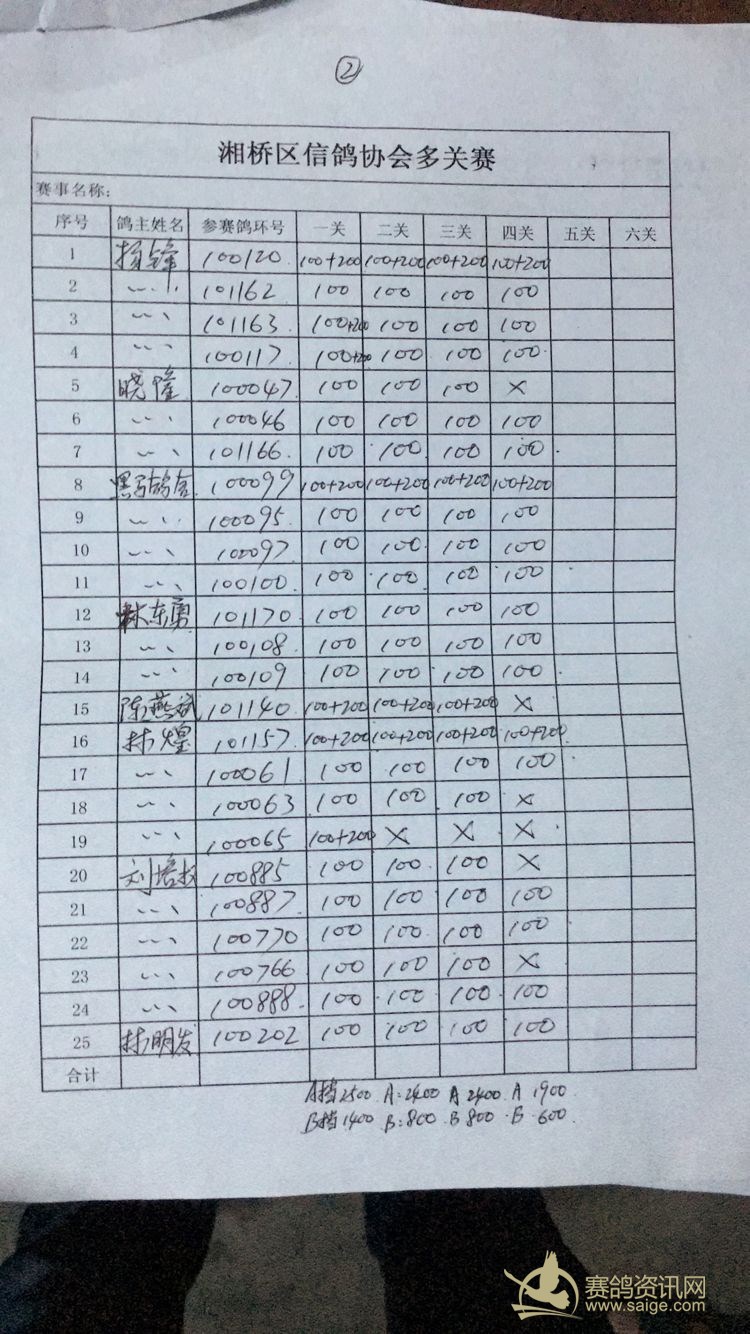 ②
湘桥区信鸽协会多关赛
赛事名称:
序号 鸽主姓名 参赛鸽环号 一关 二关 三关 四关 五关 六关
1 100120. 100+200 100+200 100+200 100+200
2 101162 100 100 100 100
3 101163. 100+200 100 100 100
4 100117. 100+200 100 100 100
5 晓隆 100047. 100 100 100 ×
6 100046 100 100 100 100
7 101166. 100 100 100 100
8 黑马鸽舍 100099 100+200 100+200 100+200 100+200
9 100095. 100 100 100 100
10 100097. 100 100 100 100
11 100100. 100 100 100 100
12 林东勇 101170. 100 100 100 100
13 100108. 100 100 100 100
14 100109 100 100 100 100
15 陈燕斌 101140. 100+200 100+200 100+200 ×
16 林煌 101157. 100+200 100+200 100+200 100+200
17 100061. 100 100 100 100
18 100063 100 100 100 ×
19 100065 100+200 × × ×
20 刘培 100885 100 100 100 ×
21 100887. 100 100 100 100
22 100770 100 100 100 100
23 100766 100 100 100 ×
24 100888. 100 100 100 100
25 林明发 100202 100 100 100 100
合计
A档2500. A:2400 A 2400. A 1900.
B档1400. B:800. B 800. B 600.
赛鸽资讯网
www.saige.com